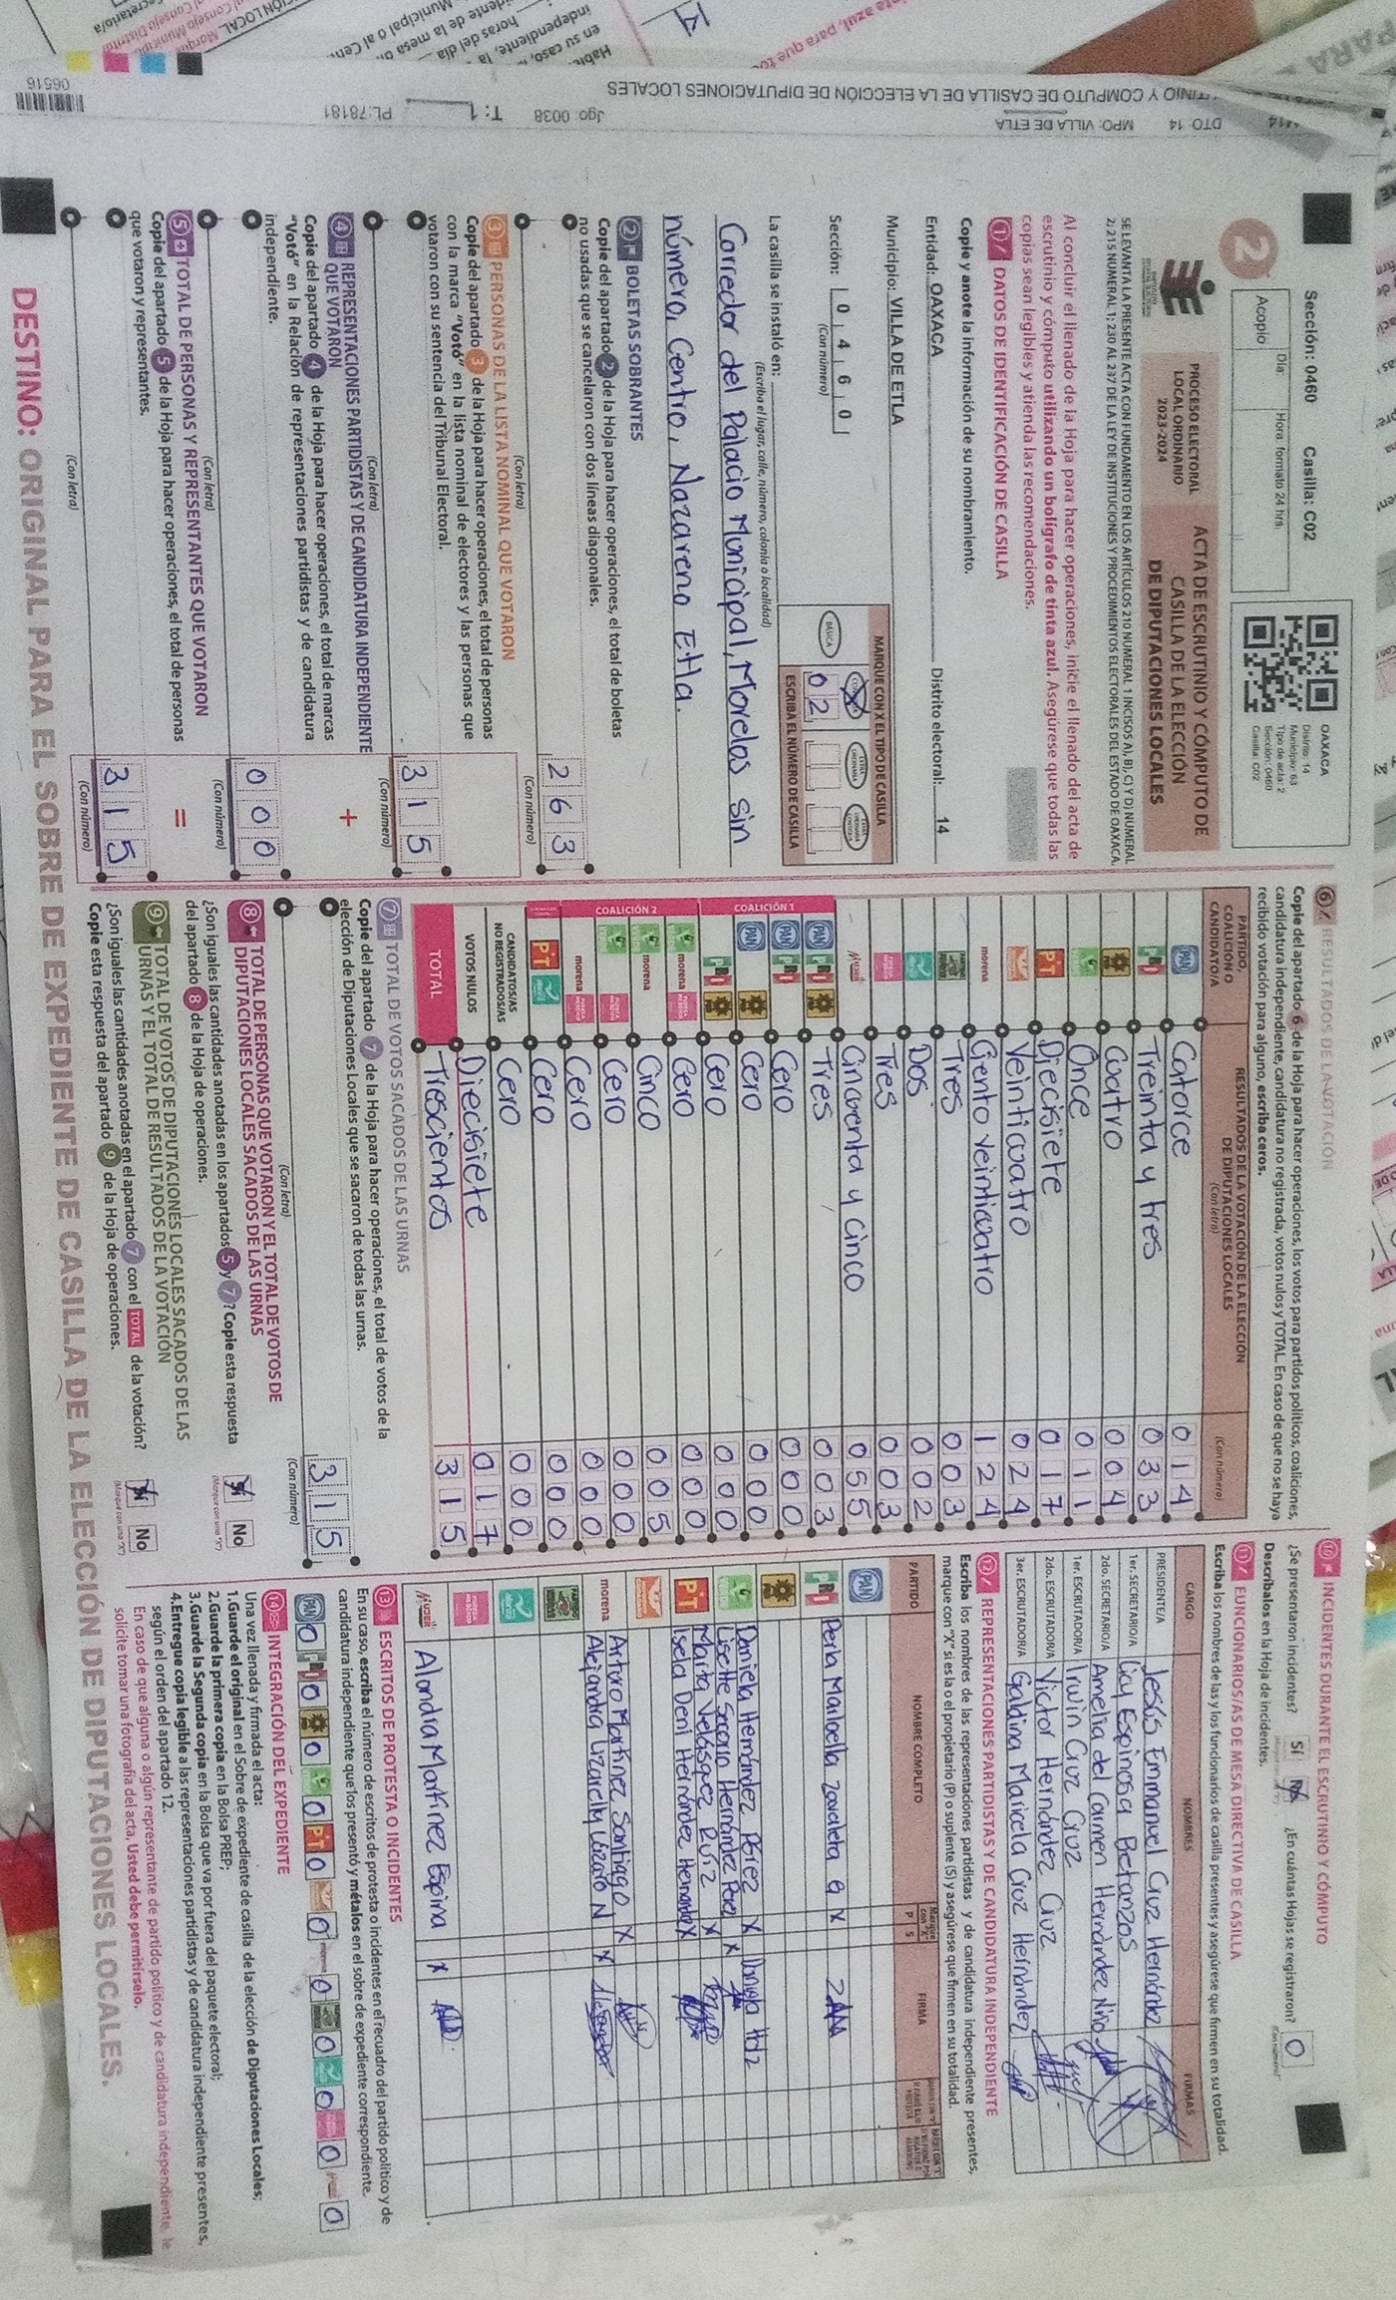 Sección: 0460 Casilla: C02
2
Acopio
Día:
Hora: formato 24 hrs.
OAXACA
Distrito: 14
Municipio: 63
Tipo de acta: 2
Sección: 0460
Casilla: C02
PROCESO ELECTORAL
LOCAL ORDINARIO
2023-2024
ACTA DE ESCRUTINIO Y CÓMPUTO DE
CASILLA DE LA ELECCIÓN
DE DIPUTACIONES LOCALES
SE LEVANTA LA PRESENTE ACTA CON FUNDAMENTO EN LOS ARTÍCULOS 210 NUMERAL 1 INCISOS A), B), C) Y D) NUMERAL
2; 215 NUMERAL 1; 230 AL 237 DE LA LEY DE INSTITUCIONES Y PROCEDIMIENTOS ELECTORALES DEL ESTADO DE OAXACA.
Al concluir el llenado de la Hoja para hacer operaciones, inicie el llenado del acta de
escrutinio y cómputo utilizando un bolígrafo de tinta azul. Asegúrese que todas las
copias sean legibles y atienda las recomendaciones.
1 DATOS DE IDENTIFICACIÓN DE CASILLA
Copie y anote la información de su nombramiento.
Entidad: OAXACA Distrito electoral: 14
Municipio: VILLA DE ETLA
Sección: 0 4 6 0
(Con número)
MARQUE CON X EL TIPO DE CASILLA
BÁSICA
ESCRIBA EL NÚMERO DE CASILLA
0 2
La casilla se instaló en:
(Escriba el lugar, calle, número, colonia o localidad)
Corredor del Palacio Municipal, Morelos sin
número, Centro, Nazareno Etla.
2 BOLETAS SOBRANTES
Copie del apartado 2 de la Hoja para hacer operaciones, el total de boletas
no usadas que se cancelaron con dos líneas diagonales.
2 6 3
(Con letra) (Con número)
3 PERSONAS DE LA LISTA NOMINAL QUE VOTARON
Copie del apartado 3 de la Hoja para hacer operaciones, el total de personas
con la marca "Votó" en la lista nominal de electores y las personas que
votaron con su sentencia del Tribunal Electoral.
3 1 5
(Con letra) (Con número)
4 REPRESENTACIONES PARTIDISTAS Y DE CANDIDATURA INDEPENDIENTE
QUE VOTARON
+
Copie del apartado 4 de la Hoja para hacer operaciones, el total de marcas
"Votó" en la Relación de representaciones partidistas y de candidatura
independiente.
0 0 0
(Con letra) (Con número)
5 TOTAL DE PERSONAS Y REPRESENTANTES QUE VOTARON
=
Copie del apartado 5 de la Hoja para hacer operaciones, el total de personas
que votaron y representantes.
3 1 5
(Con letra) (Con número)
6 RESULTADOS DE LA VOTACIÓN
Copie del apartado 6 de la Hoja para hacer operaciones, los votos para partidos políticos, coaliciones,
candidatura independiente, candidatura no registrada, votos nulos y TOTAL. En caso de que no se haya
recibido votación para alguno, escriba ceros.
PARTIDO,
COALICIÓN O
CANDIDATO/A
RESULTADOS DE LA VOTACIÓN DE LA ELECCIÓN
DE DIPUTACIONES LOCALES
(Con letra) (Con número)
PAN Catorce 0 1 4
PRI Treinta y tres 0 3 3
Cuatro 0 0 4
Once 0 1 1
PT Diecisiete 0 1 7
Veinticuatro 0 2 4
morena Ciento veinticuatro 1 2 4
Tres 0 0 3
Dos 0 0 2
Tres 0 0 3
Mujer Cincuenta y cinco 0 5 5
COALICIÓN 1
PAN PRI Tres 0 0 3
PAN PRI Cero 0 0 0
PAN Cero 0 0 0
PRI Cero 0 0 0
COALICIÓN 2
morena Cero 0 0 0
morena Cinco 0 0 5
Cero 0 0 0
morena Cero 0 0 0
PT Cero 0 0 0
CANDIDATOS/AS
NO REGISTRADOS/AS Cero 0 0 0
VOTOS NULOS Diecisiete 0 1 7
TOTAL Trescientos 3 1 5
7 TOTAL DE VOTOS SACADOS DE LAS URNAS
Copie del apartado 7 de la Hoja para hacer operaciones, el total de votos de la
elección de Diputaciones Locales que se sacaron de todas las urnas.
3 1 5
(Con letra) (Con número)
8 TOTAL DE PERSONAS QUE VOTARON Y EL TOTAL DE VOTOS DE
DIPUTACIONES LOCALES SACADOS DE LAS URNAS
¿Son iguales las cantidades anotadas en los apartados 5 y 7? Copie esta respuesta
del apartado 8 de la Hoja de operaciones.
Sí No
(Marque con una "X")
9 TOTAL DE VOTOS DE DIPUTACIONES LOCALES SACADOS DE LAS
URNAS Y EL TOTAL DE RESULTADOS DE LA VOTACIÓN
¿Son iguales las cantidades anotadas en el apartado 7 con el TOTAL de la votación?
Copie esta respuesta del apartado 9 de la Hoja de operaciones.
Sí No
(Marque con una "X")
10 INCIDENTES DURANTE EL ESCRUTINIO Y CÓMPUTO
¿Se presentaron incidentes? Sí No ¿En cuántas Hojas se registraron? 0
Descríbalos en la Hoja de incidentes.
11 FUNCIONARIOS/AS DE MESA DIRECTIVA DE CASILLA
Escriba los nombres de las y los funcionarios de casilla presentes y asegúrese que firmen en su totalidad.
CARGO NOMBRES FIRMAS
PRESIDENTE/A Jesús Emmanuel Cruz Hernández
1er. SECRETARIO/A Espinosa Betanzos
2do. SECRETARIO/A Amelia del Carmen Hernández Niño
1er. ESCRUTADOR/A Irwin Cruz Cruz
2do. ESCRUTADOR/A Victor Hernández Cruz
3er. ESCRUTADOR/A Galdina Maricela Cruz Hernández
12 REPRESENTACIONES PARTIDISTAS Y DE CANDIDATURA INDEPENDIENTE
Escriba los nombres de las representaciones partidistas y de candidatura independiente presentes,
marque con "X" si es la o el propietario (P) o suplente (S) y asegúrese que firmen en su totalidad.
PARTIDO NOMBRE COMPLETO P S FIRMA
PAN
PRI Perla Maribella Zavaleta G X
Daniela Hernández Pérez X
Lisette Socorro Hernández Perez X
Marta Velásquez Ruiz X
PT Isela Deni Hernández Hernández X
morena Arturo Martínez Santiago X
Alejandra Lizarelly Lázaro N X
Mujer Alondra Martínez Espina X
13 ESCRITOS DE PROTESTA O INCIDENTES
En su caso, escriba el número de escritos de protesta o incidentes en el recuadro del partido político y de
candidatura independiente que los presentó y métalos en el sobre de expediente correspondiente.
PAN 0 PRI 0 0 0 PT 0 0 0 0 0 0 0
14 INTEGRACIÓN DEL EXPEDIENTE
Una vez llenada y firmada el acta:
1.Guarde el original en el Sobre de expediente de casilla de la elección de Diputaciones Locales;
2.Guarde la primera copia en la Bolsa PREP;
3.Guarde la Segunda copia en la Bolsa que va por fuera del paquete electoral;
4.Entregue copia legible a las representaciones partidistas y de candidatura independiente presentes,
según el orden del apartado 12.
En caso de que alguna o algún representante de partido político y de candidatura independiente, le
solicite tomar una fotografía del acta, Usted debe permitírselo.
DESTINO: ORIGINAL PARA EL SOBRE DE EXPEDIENTE DE CASILLA DE LA ELECCIÓN DE DIPUTACIONES LOCALES.
DTO: 14 MPO: VILLA DE ETLA
Y COMPUTO DE CASILLA DE LA ELECCIÓN DE DIPUTACIONES LOCALES
Jgo: 0038 T: 1 PL:78181
06516